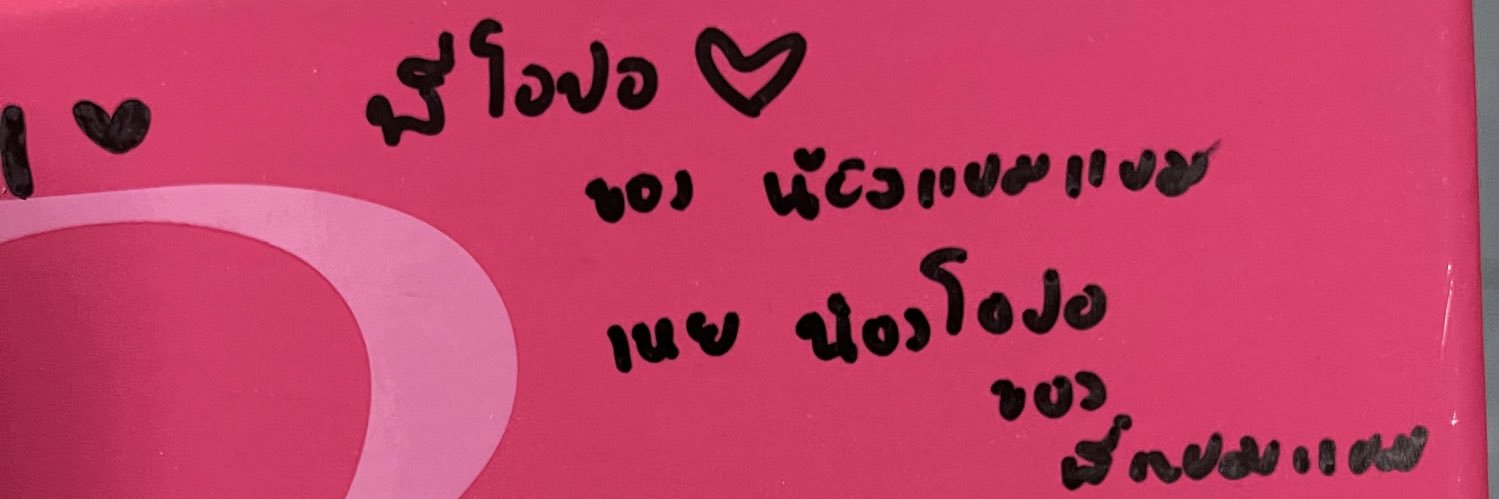 พี่โอปอ ♡
ของ น้องแยมแยม
เหย น้องโอปอ
ของ
พี่แยมแยม